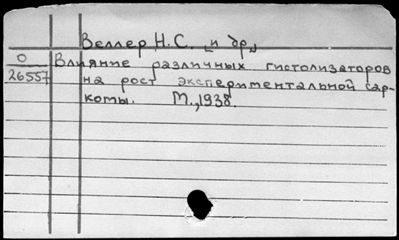 Веллер Н.С. [и др]
О
26557
Влияние различных гистолизаторов
на рост экспериментальной сар-
комы. М., 1938.